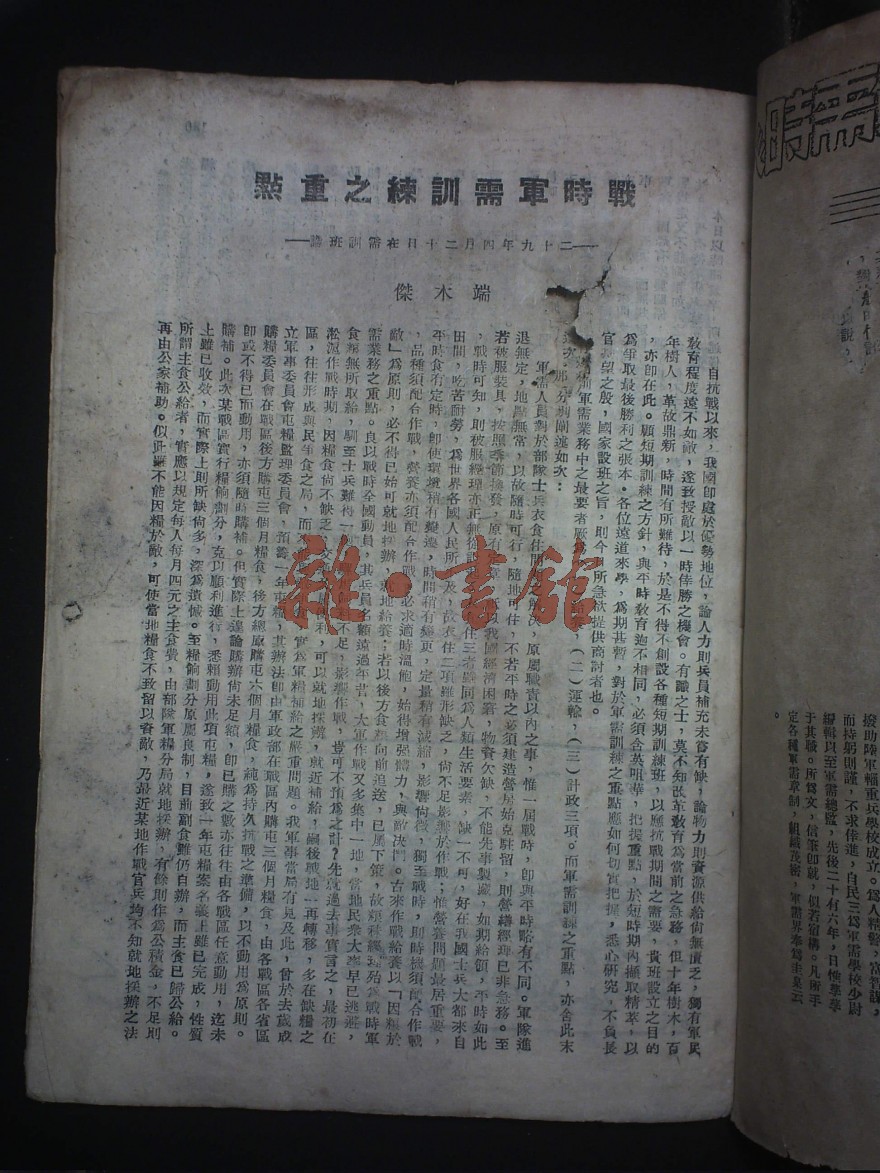 戰時軍需訓練之重點
—二十九年四月二十日在需訓班講—
端木傑
自抗戰以來，我國卽處於優勢地位，論人力則兵員補充未嘗有缺，論物力則資源供給尙無匱乏，獨有軍民
敎育程度遠不如敵，遂致授敵以一時倖勝之機會。有識之士，莫不知改革敎育爲當前之急務，但十年樹木，百
年樹人，革故鼎新，時間有所難待，於是不得不創設各種短期訓練班，以應抗戰期間之需要，貴班設立之目的
，亦卽在此。顧短期訓練之方針，與平時敎育逈不相同，必須含英咀華，把握重點，於短時期內擷取精萃，以
爲爭取最後勝利之張本。各位遠道來學，爲期甚暫，對於軍需訓練之重點應如何切實把握，悉心研究，不負長
官期望之殷，國家設班之旨，則今日所急欲提供商討者也。
軍需業務中之最要者厥爲（二）運輸，（三）計政三項。而軍需訓練之重點，亦舍此末
次，那分別闡述如次：
軍需人員對於部隊士兵衣食住問題之解決，原屬職責以內之事，惟一屆戰時，卽與平時略有不同。軍隊進
退無定，地點無常，以故隨時可行，隨地可住，不若平時之必須建造營房始克駐留，則營繕經理已非急務。至
若被服裝具，按照季節換發，原有定章，在以我國經濟困窘，物資欠缺，不能先事製儲，如期給領，平時如此
，戰時可知，則被服經理亦正無從說住三者雖同為人類生活要素，缺一不可，好在我國士兵大都來自
田間，吃苦耐勞，爲世界各國人民所不及，故衣住二項雖形缺乏，尙不足影響於作戰；惟營養問題最居重要，
平時食有定時，卽使環境稍有變遷，時間稍有變更，定量稍有減縮，影響尙微，獨至戰時，則時機須配合作戰
，品種須配合作戰，營養亦須配合作戰，必求適時溫飽，始得增强體力，與敵決鬥。古來作戰給養以「因糧於
敵」爲原則，必不得已始可就地採辦，就地給養；若以後方食糧向前追送，已屬下策，故糧秣經理殆爲戰時軍
需業務之重點。良以戰時全國動員，其兵員名額遠過平昔，大軍作戰又多集中一地，當地民衆大率早已逃避，
食糧無所取給，馴至士兵難得一不足，影響作戰，豈可不預爲之計？先就過去事實言之，最初在
淞滬作戰時期，因糧食尙不缺乏，交通便利，可以就地採辦，就近補給，嗣後戰地一再轉移，多在缺糧之
區，往往形成與民爭食之局，而實爲軍糧補給之嚴重問題。我軍事當局有見及此，曾於去歲成
立軍事委員會屯糧監理委員會，預籌一年屯糧，其辦法卽由軍政部在戰區內購屯三個月糧食，由各戰區各省區
購糧委員會在戰區後方購屯三個月糧食，後方總原購屯六個月糧食，純爲持久抗戰之準備，以不動用爲原則。
卽或不得已而動用，亦須隨時購補。但實際上遑論購辦尙未足額，卽已購之數亦往往由各戰區任意動用，迄未
購補。此次某戰區實行糧餉劃分，克以順利進行，悉賴動用此項屯糧，遂致一年屯糧案名義上雖已完成，性質
上雖已收效，而實際上則所缺尙多，深爲遺憾。至糧餉劃分原屬良制，目前副食雖仍自辦，而主食已歸公給。
所謂主食公給者，實應以規定每人每月四元之主食費，由部隊軍糧分局就地採辦，有餘則作爲公積金，不足則
再由公家補助。似此雖不能因糧於敵，可使當地糧食不致留以資敵，乃最近某地作戰官兵均不知就地採辦之法
雜·書館
時需
援助陸軍輜重兵學校成立。爲人精幹，富智謀，
而持躬則謹，不求倖進，自民三爲軍需學校少尉
編輯以至軍需總監，先後二十有六年，日惟孳孳
于其職。所爲文，信筆卽就，似若宿構。凡所手
定各種軍需章制，組織茂密，軍需界奉爲圭臬云
。